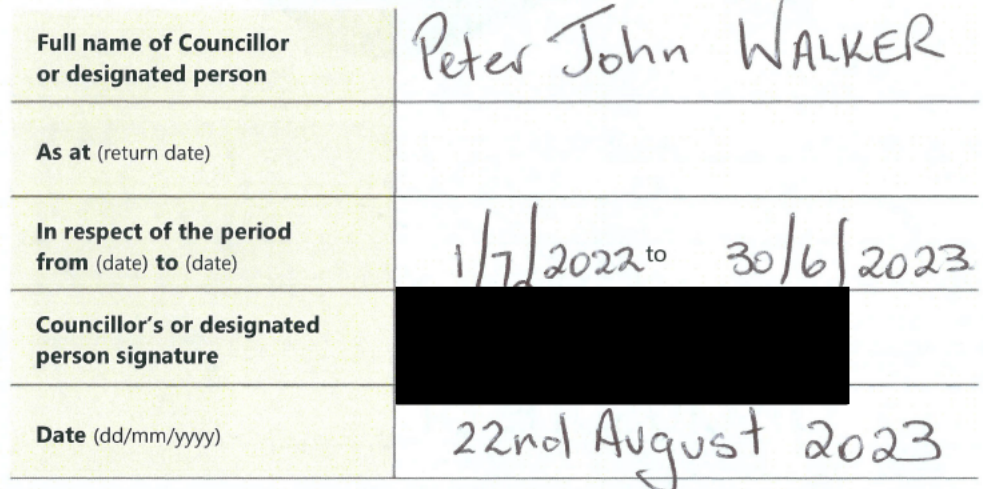 Full name of Councillor
or designated person
Peter John WALKER
As at (return date)
In respect of the period
from (date) to (date)
1/7/2022 to 30/6/2023
Councillor's or designated
person signature
Date (dd/mm/yyyy)
22nd August 2023